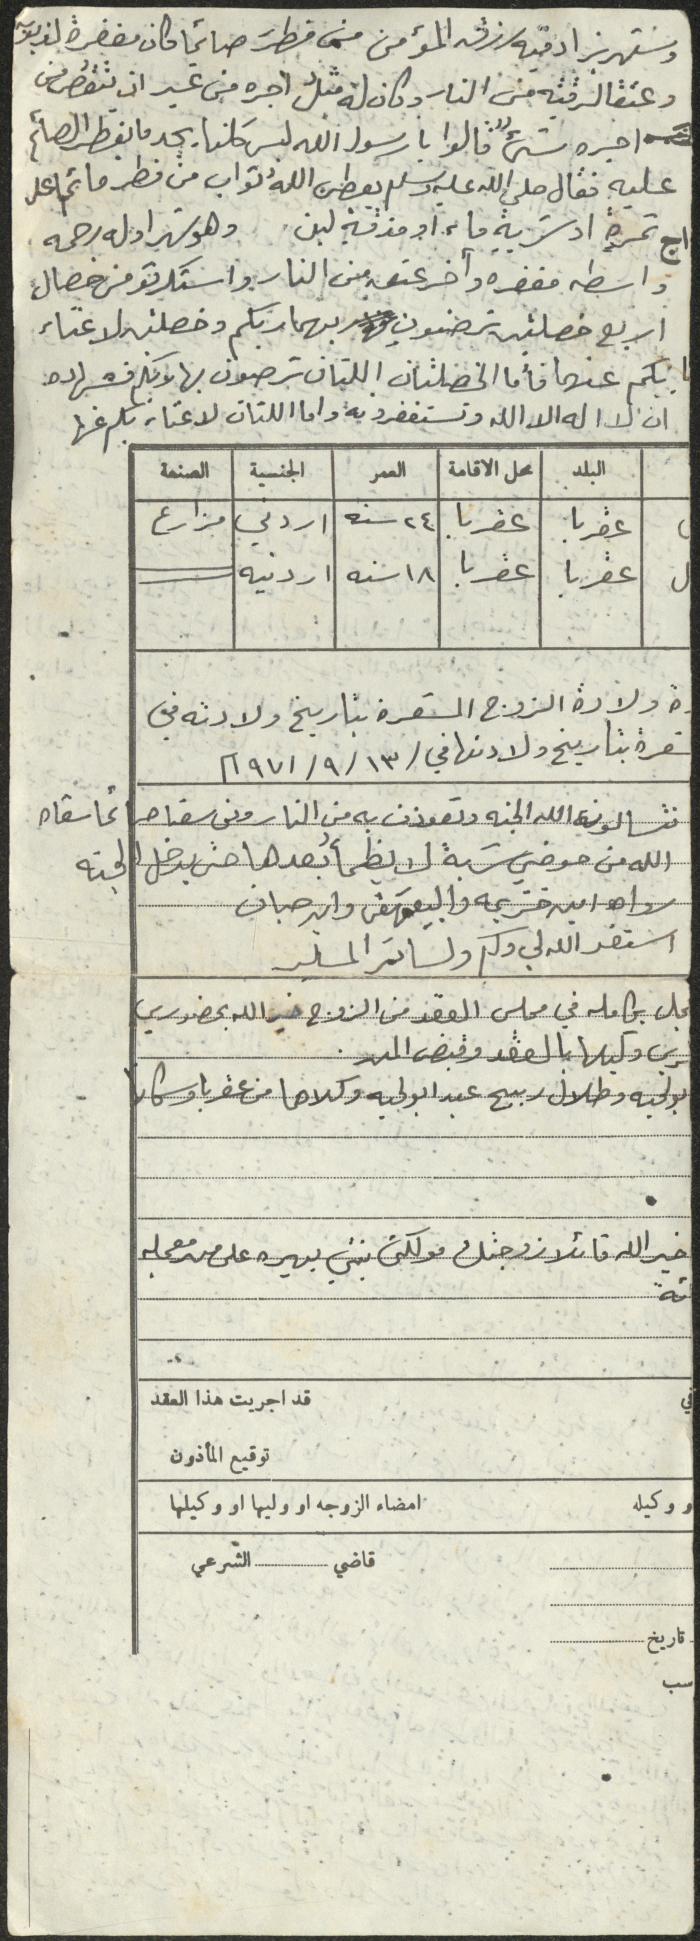 وشهر يزاد فيه رزق المؤمن من فطر صائما كان مغفرة لذنوبه
وعتقا لرقبته من النار وكان له مثل اجره من غير ان ينقص من
اجره شئ قالوا يا رسول الله ليس كلنا يجد ما يفطر الصائم
عليه فقال صلى الله عليه وسلم يعطي الله ثواب من فطر صائما على
تمرة او شربة ماء او مذقة لبن . وهو شهر اوله رحمه
واسطه مغفره وآخر عتق من النار واستكثرو من خصال
اربع خصلتين ترضون بهما ربكم وخصلتين لا غناء
بكم عنهما فأما الخصلتان اللتان ترضون بها ربكم فشهاده
ان لا اله الا الله وتستغفرونه واما اللتان لا غناء بكم عنها
البلد محل الاقامة العمر الجنسية الصنعة
عقربا عقربا ٢٤ سنه اردني مزارع
عقربا عقربا ١٨ سنه اردنيه
ولادة الزوج المشعرة بتاريخ ولادته في
بتاريخ ولادتها في ١٣ / ٩ / ١٩٧١
تسالون الله الجنه وتعوذن به من النار ومن سقا صائما سقاه
الله من حوضي شربة لا يظمأ بعدها حتى يدخل الجنه
رواه ابن خزيمه والبيهقي وابن حبان
استغفر الله لي ولكم ولسائر المسلمين
بكامله في مجلس العقد من الزوج خير الله بحضوري
وكيلها بالعقد وقبض المهر .
وطلال ربيع عبد ابولحيه وكلاهما من عقربا وسكانها
خير الله قائلا زوجتك موكلتي بنتي بهيره على مهر معجله
في قد اجريت هذا العقد
توقيع المأذون
و وكيله امضاء الزوجه او وليها او وكيلها
قاضي الشرعي
تاريخ
سب